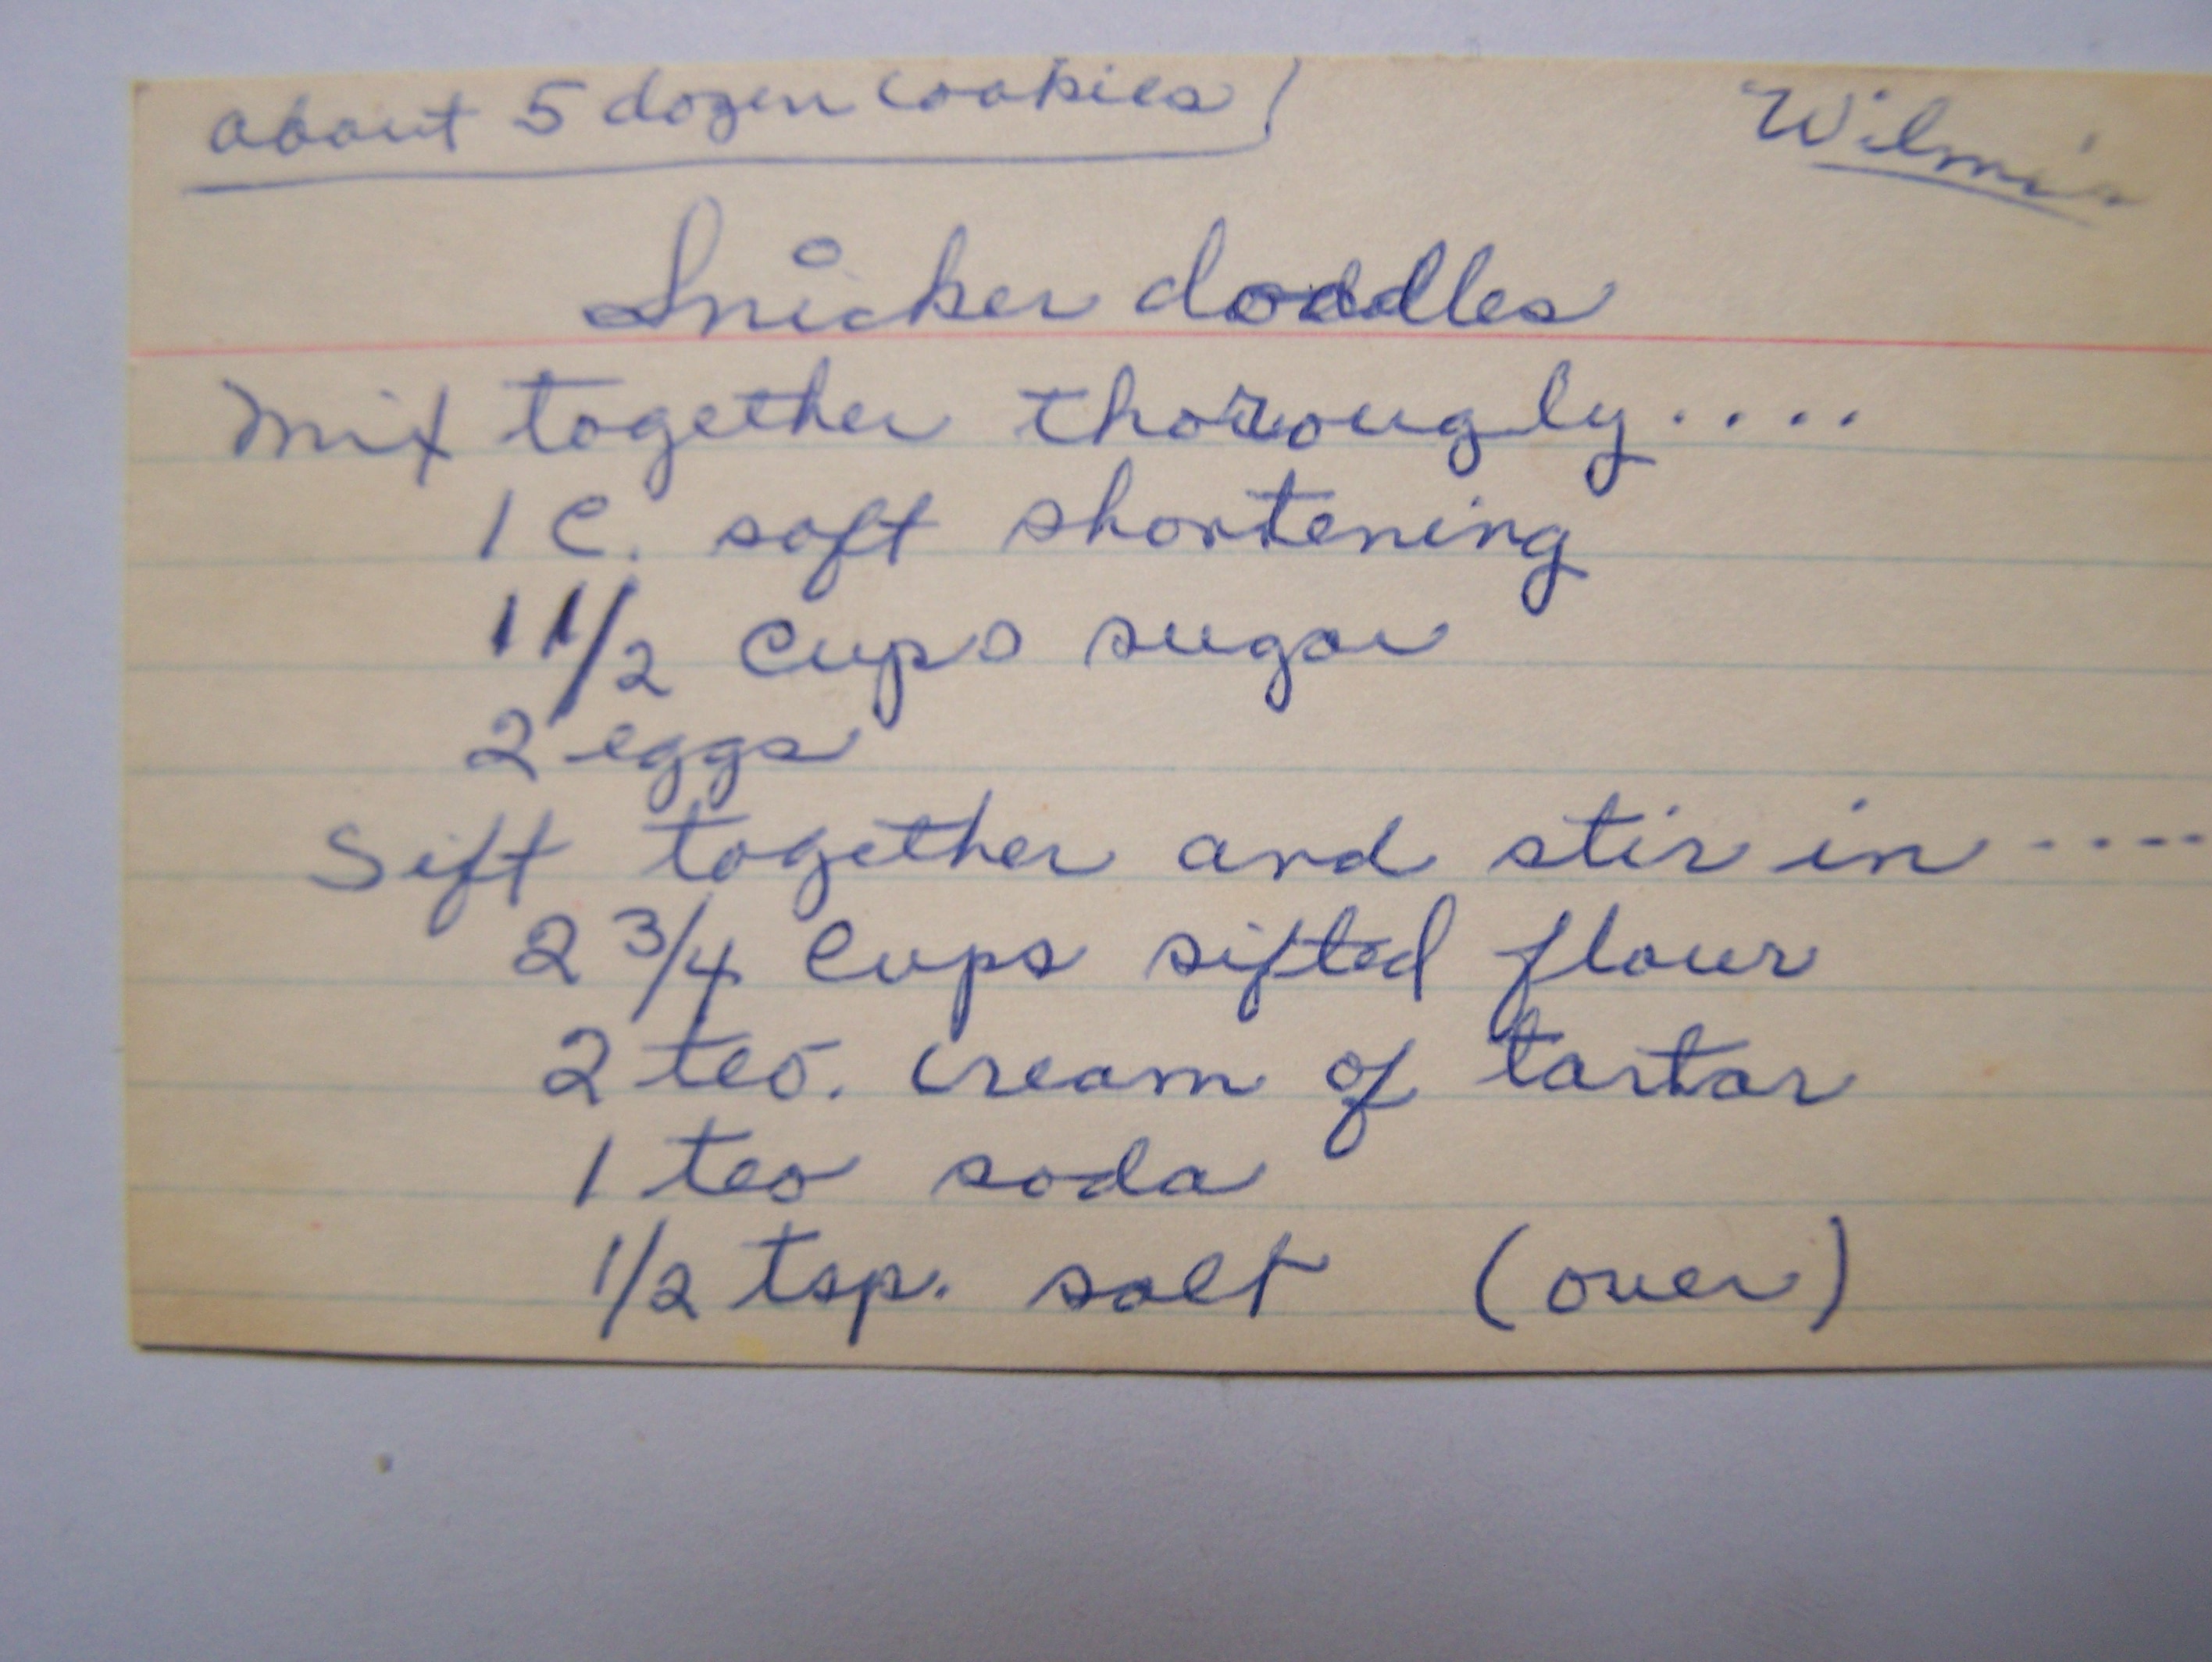 about 5 dozen cookies
Snicker doodles
Mix together thorougly....
1 C. soft shortening
1 1/2 cups sugar
2 eggs
Sift together and stir in -----
2 3/4 cups sifted flour
2 teas. cream of tartar
1 teas soda
1/2 tsp. salt (over)